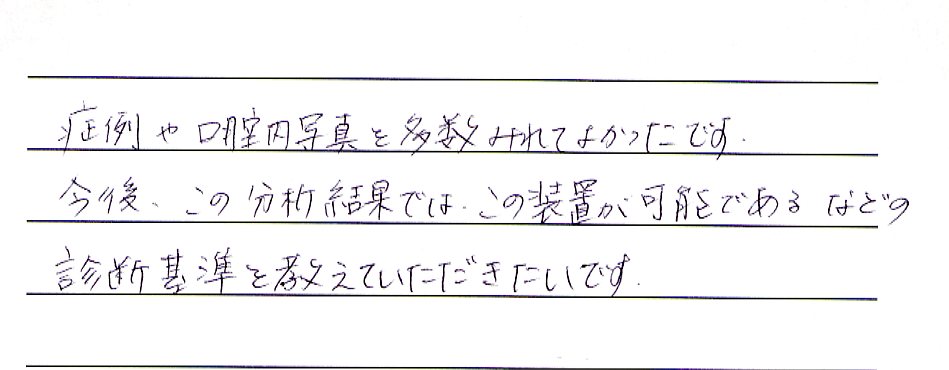 症例や口腔内写真を多数みれてよかったです.
今後、この分析結果では、この装置が可能であるなどの
診断基準を教えていただきたいです.